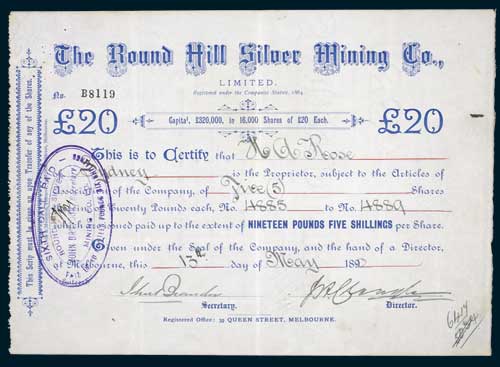 The Round Hill Silver Mining Co.,
LIMITED.
Registered under the Companies Statute, 1864
No. B8119
£20 Capital, £320,000, in 16,000 Shares of £20 Each. £20
This is to Certify that H A Rose
of Sydney is the Proprietor, subject to the Articles of
Association of the Company, of Five (5) Shares
of Twenty Pounds each, No. 4885 to No. 4889
which is issued paid up to the extent of NINETEEN POUNDS FIVE SHILLINGS per Share.
Given under the Seal of the Company, and the hand of a Director,
at Melbourne, this 13th day of May 189
Secretary. Director.
Registered Office: 39 QUEEN STREET, MELBOURNE.
This Scrip must be given up, upon Transfer of any of the Shares.
SIXTH CALL PAID